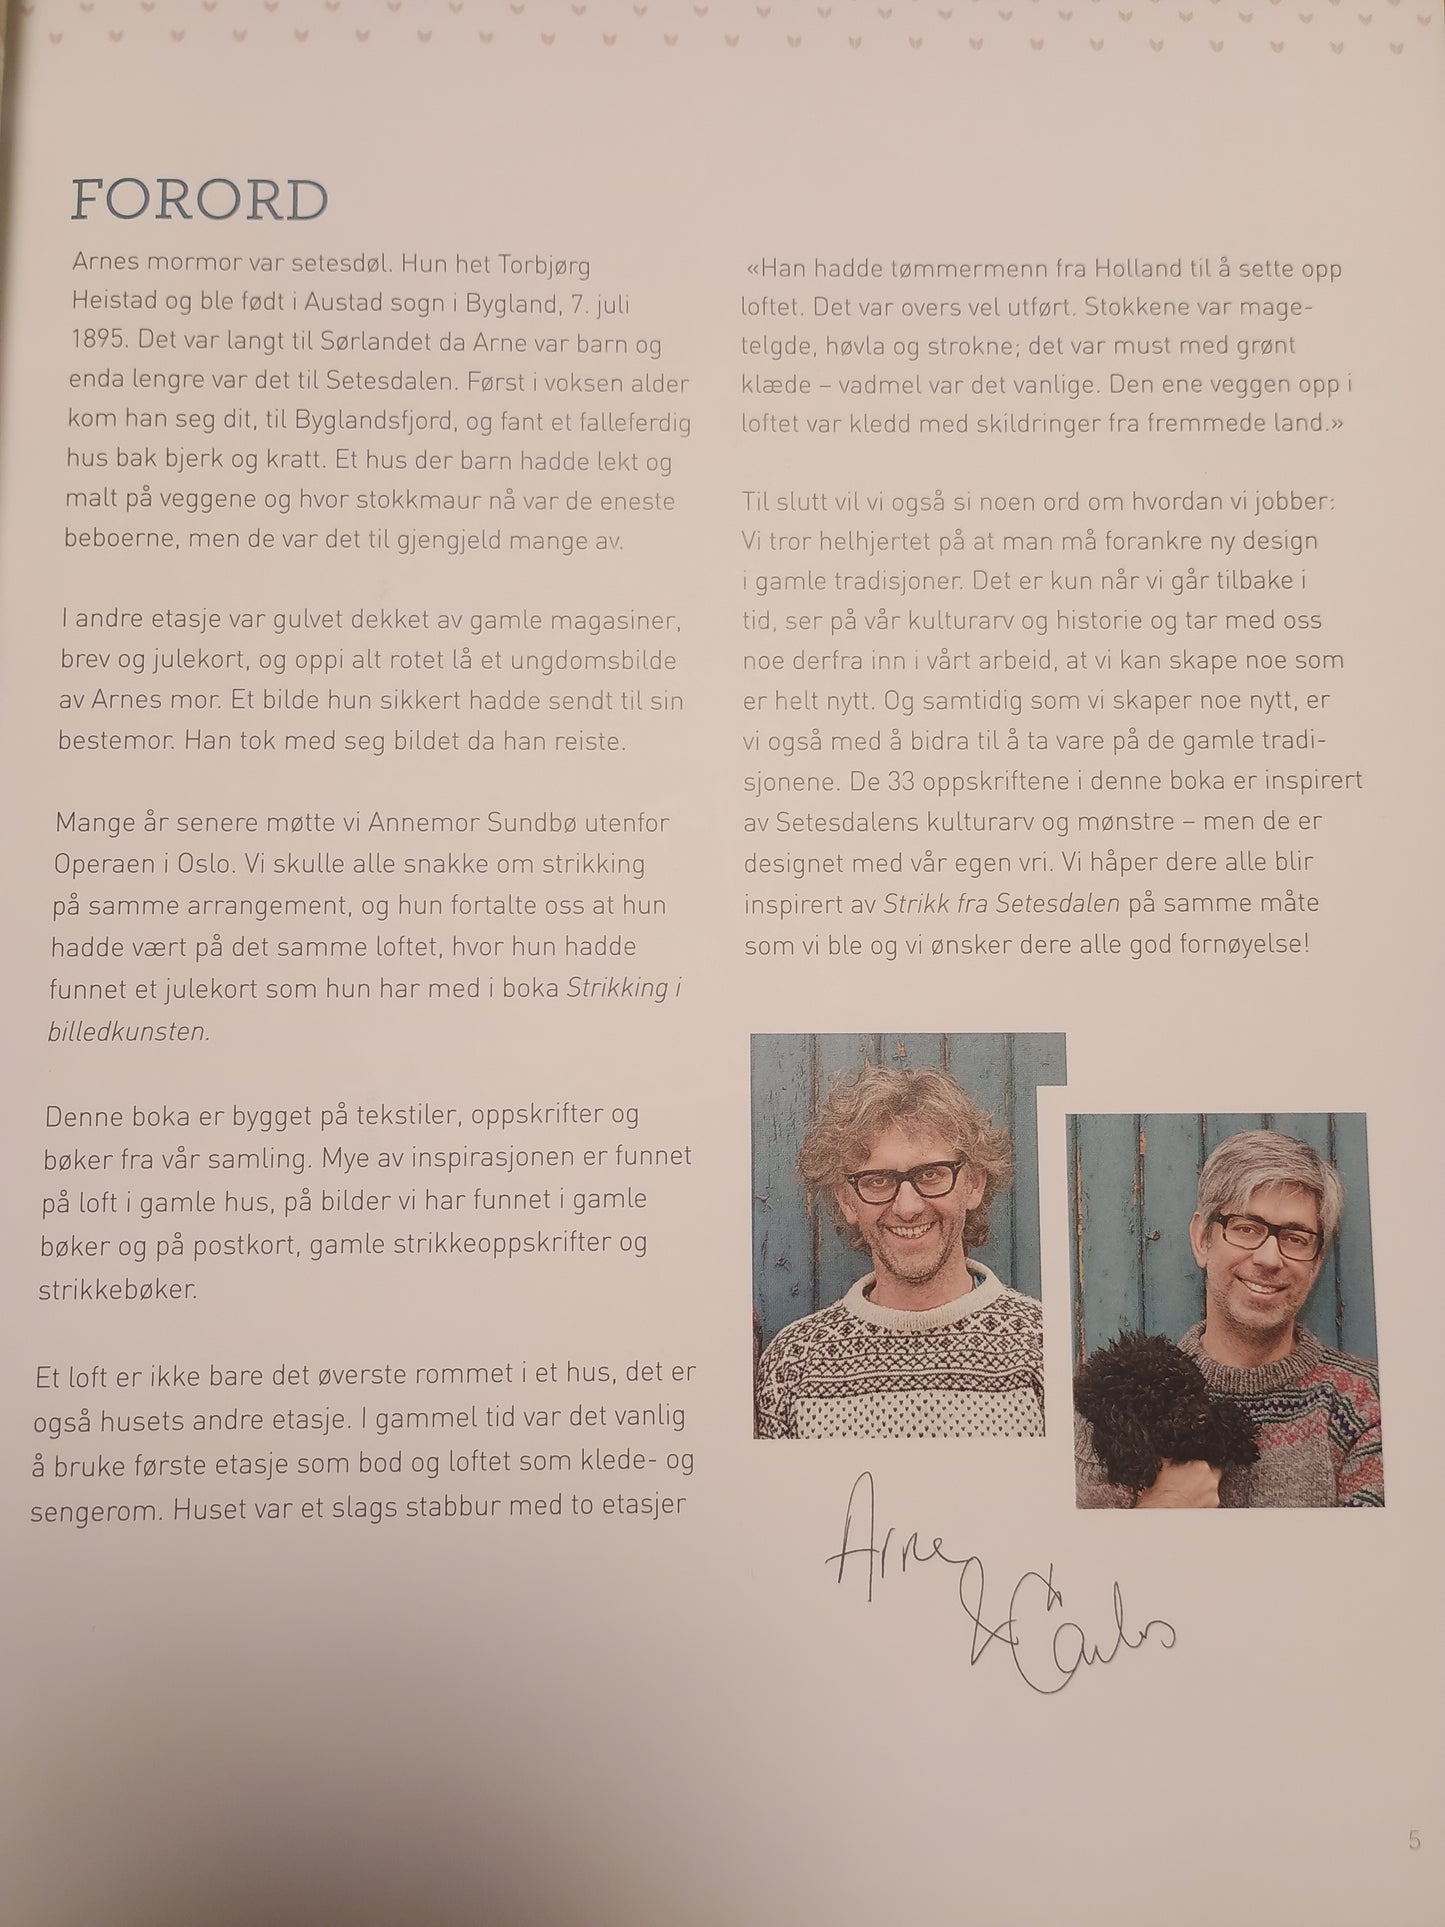 FORORD
Arnes mormor var setesdøl. Hun het Torbjørg
Heistad og ble født i Austad sogn i Bygland, 7. juli
1895. Det var langt til Sørlandet da Arne var barn og
enda lengre var det til Setesdalen. Først i voksen alder
kom han seg dit, til Byglandsfjord, og fant et falleferdig
hus bak bjerk og kratt. Et hus der barn hadde lekt og
malt på veggene og hvor stokkmaur nå var de eneste
beboerne, men de var det til gjengjeld mange av.
I andre etasje var gulvet dekket av gamle magasiner,
brev og julekort, og oppi alt rotet lå et ungdomsbilde
av Arnes mor. Et bilde hun sikkert hadde sendt til sin
bestemor. Han tok med seg bildet da han reiste.
Mange år senere møtte vi Annemor Sundbø utenfor
Operaen i Oslo. Vi skulle alle snakke om strikking
på samme arrangement, og hun fortalte oss at hun
hadde vært på det samme loftet, hvor hun hadde
funnet et julekort som hun har med i boka Strikking i
billedkunsten.
Denne boka er bygget på tekstiler, oppskrifter og
bøker fra vår samling. Mye av inspirasjonen er funnet
på loft i gamle hus, på bilder vi har funnet i gamle
bøker og på postkort, gamle strikkeoppskrifter og
strikkebøker.
Et loft er ikke bare det øverste rommet i et hus, det er
også husets andre etasje. I gammel tid var det vanlig
å bruke første etasje som bod og loftet som klede- og
sengerom. Huset var et slags stabbur med to etasjer
«Han hadde tømmermenn fra Holland til å sette opp
loftet. Det var overs vel utført. Stokkene var mage-
telgde, høvla og strokne; det var must med grønt
klæde – vadmel var det vanlige. Den ene veggen opp i
loftet var kledd med skildringer fra fremmede land.»
Til slutt vil vi også si noen ord om hvordan vi jobber:
Vi tror helhjertet på at man må forankre ny design
i gamle tradisjoner. Det er kun når vi går tilbake i
tid, ser på vår kulturarv og historie og tar med oss
noe derfra inn i vårt arbeid, at vi kan skape noe som
er helt nytt. Og samtidig som vi skaper noe nytt, er
vi også med å bidra til å ta vare på de gamle tradi-
sjonene. De 33 oppskriftene i denne boka er inspirert
av Setesdalens kulturarv og mønstre – men de er
designet med vår egen vri. Vi håper dere alle blir
inspirert av Strikk fra Setesdalen på samme måte
som vi ble og vi ønsker dere alle god fornøyelse!
Arne
& Carlos
5